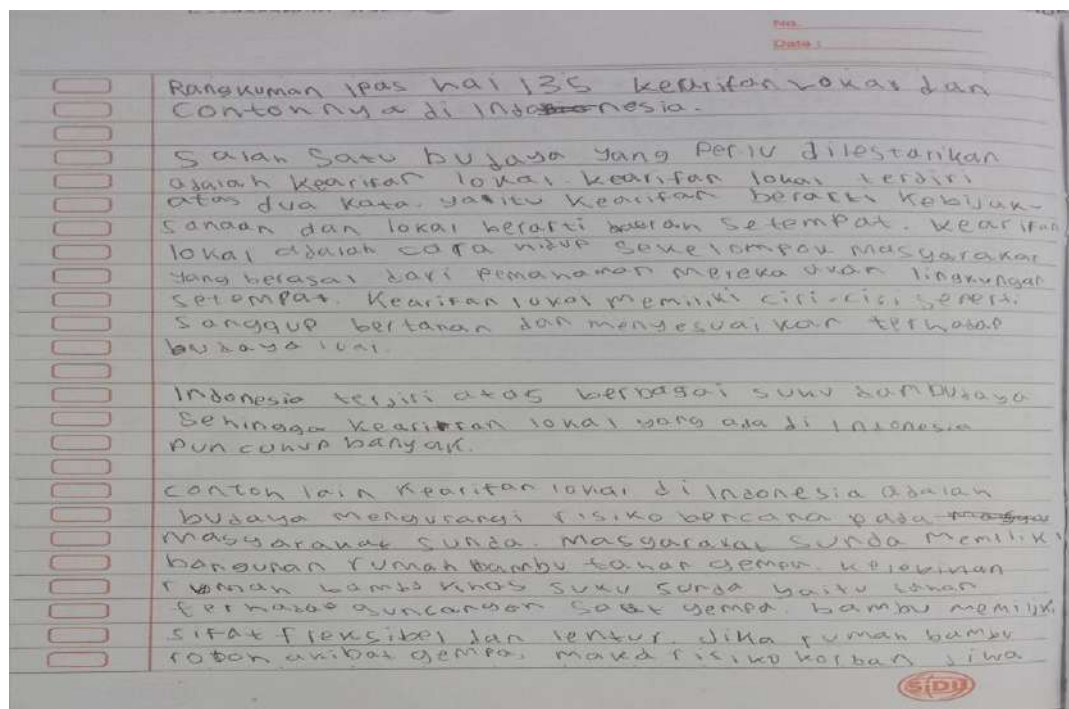 No.
Date :
Rangkuman ipas hal 135 kearifan Lokal dan
Contohnya di Indonesia.
Salah Satu budaya yang Perlu dilestarikan
adalah kearifan lokal. kearifan lokal terdiri
atas dua Kata. yaitu kearifan berarti kebijak-
sanaan dan lokal berarti setempat. kearifan
lokal adalah cara hidup sekelompok Masyarakat
yang berasal dari pemahaman mereka akan lingkungan
setempat. Kearifan lokal memiliki ciri-ciri seperti
sanggup bertahan dan menyesuaikan terhadap
budaya luar.
Indonesia terdiri atas berbagai suku dan budaya
Sehingga kearifan lokal yang ada di Indonesia
pun cukup banyak.
contoh lain kearifan lokal di Indonesia adalah
budaya mengurangi risiko bencana pada
Masyarakat sunda. Masyarakat Sunda memiliki
bangunan rumah bambu tahan gempa. kelebihan
rumah bambu khas suku sunda yaitu tahan
terhadap guncangan saat gempa. bambu memiliki
sifat fleksibel dan lentur. Jika rumah bambu
roboh akibat gempa, maka risiko korban jiwa
SiDU